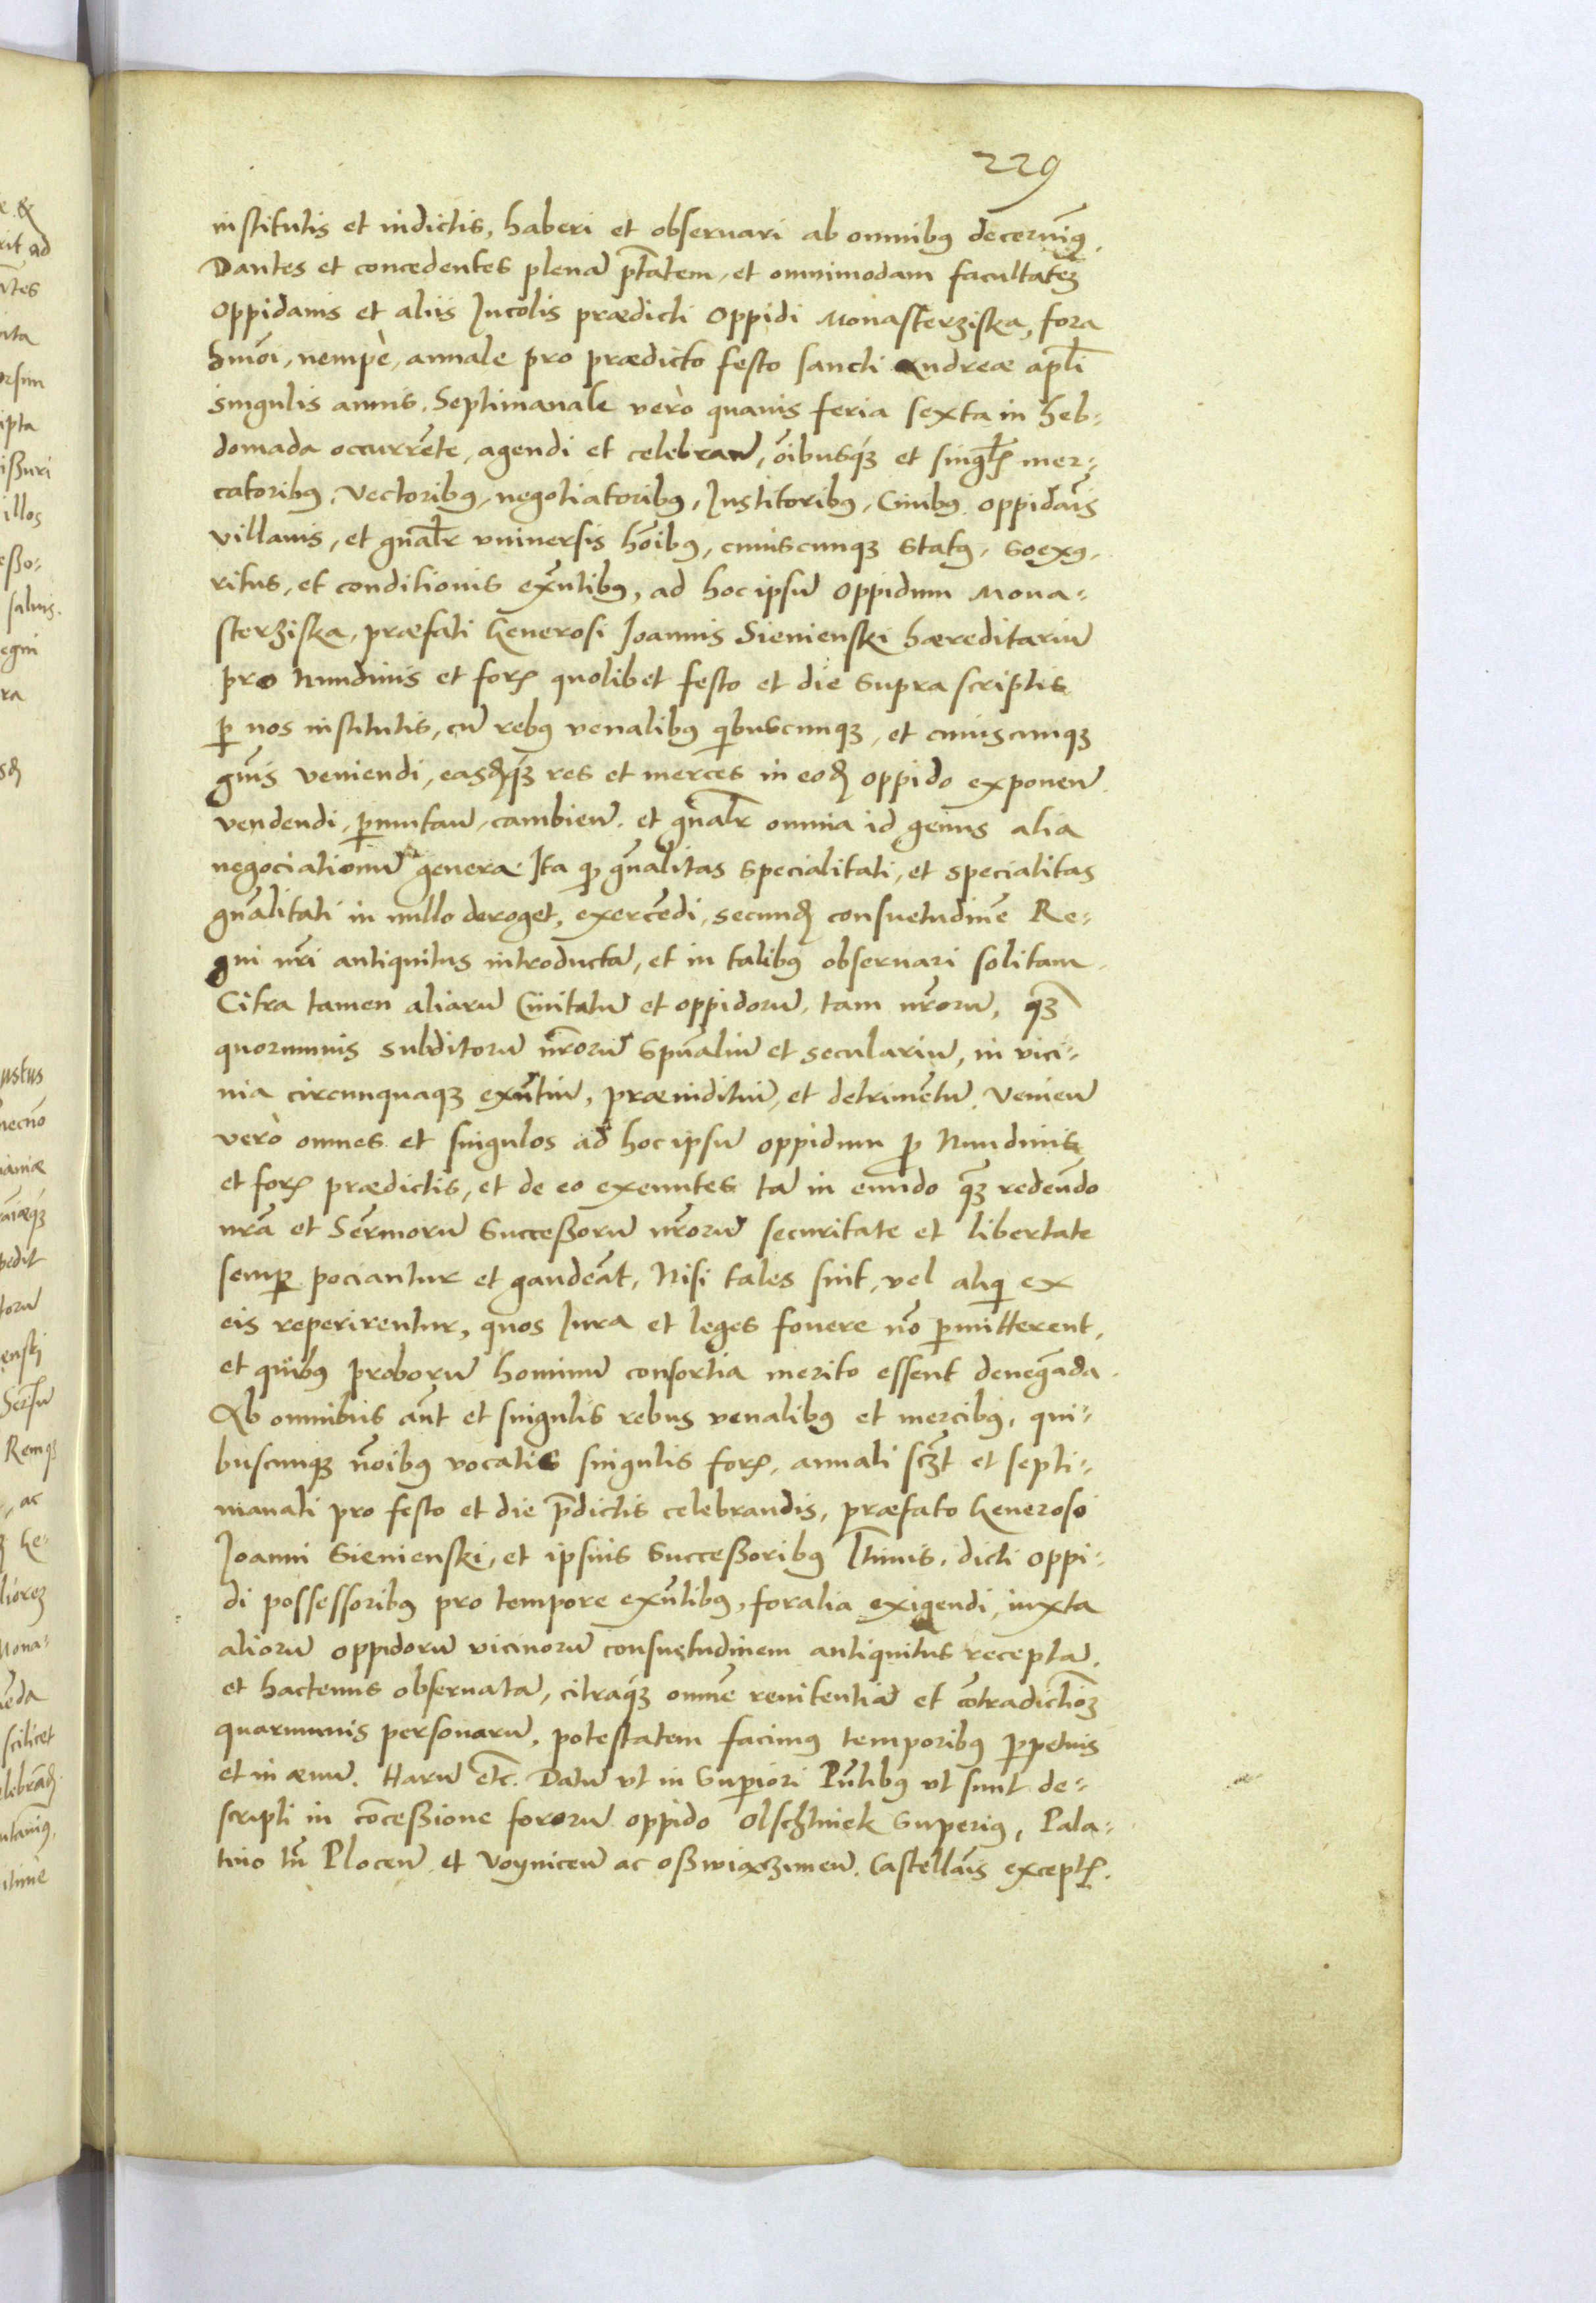 229
institutis et indictis, haberi et obseruari ab omnibꝯ decernim̃ꝯ.
Dantes et concedentes plenā p̃tatem, et omnimodam facultatēȝ
Oppidanis et aliis Incolis prædicti Oppidi Monasterziska, fora
hmõi, nempè, annale pro prædicto festo Sancti Andreæ apl̃i
singulis annis, Septimanale verò quauis feria sexta in heb-
domada occurrẽte, agendi et celebrañ, õibusq́ȝ et singl̃ꝭ mer-
catoribꝯ, Vectoribꝯ, negotiatoribꝯ, Institoribꝯ, Ciuibꝯ oppidãis
villanis, et gñal̃r vniuersis hõibꝯ, cuiuscunqȝ statꝯ, sexꝯ,
ritus, et conditionis exñtibꝯ, ad hoc ipsū Oppidum Mona-
sterziska, præfati Generosi Joannis Sienienski hæreditariū
pro Nundinis et forꝭ quolibet festo et die supra scriptis
ꝑ nos institutis, cū rebꝯ venalibꝯ qibuscunqȝ, et cuiuscunqȝ
gñis veniendi, easdq́ȝ res et merces in eod oppido exponeñ
vendendi, ꝑmutañ, cambieñ. et gñal̃r omnia id genus alia
negociationū genera Ita qꝫ gñalitas specialitati, et specialitas
gñalitati in nullo deroget, exercẽdi, secund consuetudinẽ Re-
gni nr̃i antiquitus introductā, et in talibꝯ obseruari solitam.
Citra tamen aliarū Ciuitatū et oppidorū, tam nr̃orū, qȝ̃
quorumuis subditorū nr̃orū spũaliū et seculariū, in vici-
nia circumquaqȝ exñtiū, præiuditiū, et detrimẽtū. Venieñ
verò omnes et singulos ad hoc ipsū oppidum ꝓ Nundinis
et forꝭ prædictis, et de eo exeuntes tā in eundo qȝ̃ redeũdo
nr̃a et Ser̃morū Successorū nr̃orū securitate et libertate
sempꝫ pociantur et gaudeãt, Nisi tales sint, vel aliqi ex
eis reperirentur, quos Iura et leges fouere nõ ꝑmitterent,
et quibꝯ proborū hominū consortia merito essent denegãda.
Ab omnibus aũt et singulis rebus venalibꝯ et mercibꝯ, qui-
buscunqȝ nõibꝯ vocatis singulis forꝭ, annali sczt̃ et septi-
manali pro festo et die p̃dictis celebrandis, præfato Generoso
Joanni Sienienski, et ipsius Successoribꝯ l̃timis, dicti oppi-
di possessoribꝯ pro tempore exñtibꝯ, foralia exigendi, iuxta
aliorū oppidorū vicinorū consuetudinem antiquitus receptā,
et hactenus obseruatā, citraq́ȝ omnẽ renitentiā et cõtradictiõȝ
quarumuis personarū, potestatem facimꝯ temporibꝯ ꝑpetuis
et in æuū. Harū etc̃. Datū vt in Suꝑiori Pñtibꝯ vt sunt de-
scripti in cõcessione fororū oppido Olschtinek Superiꝯ, Pala-
tino tñ Ploceñ et Voyniceñ ac Osswiæczimeñ. Castellãis exceptꝭ.